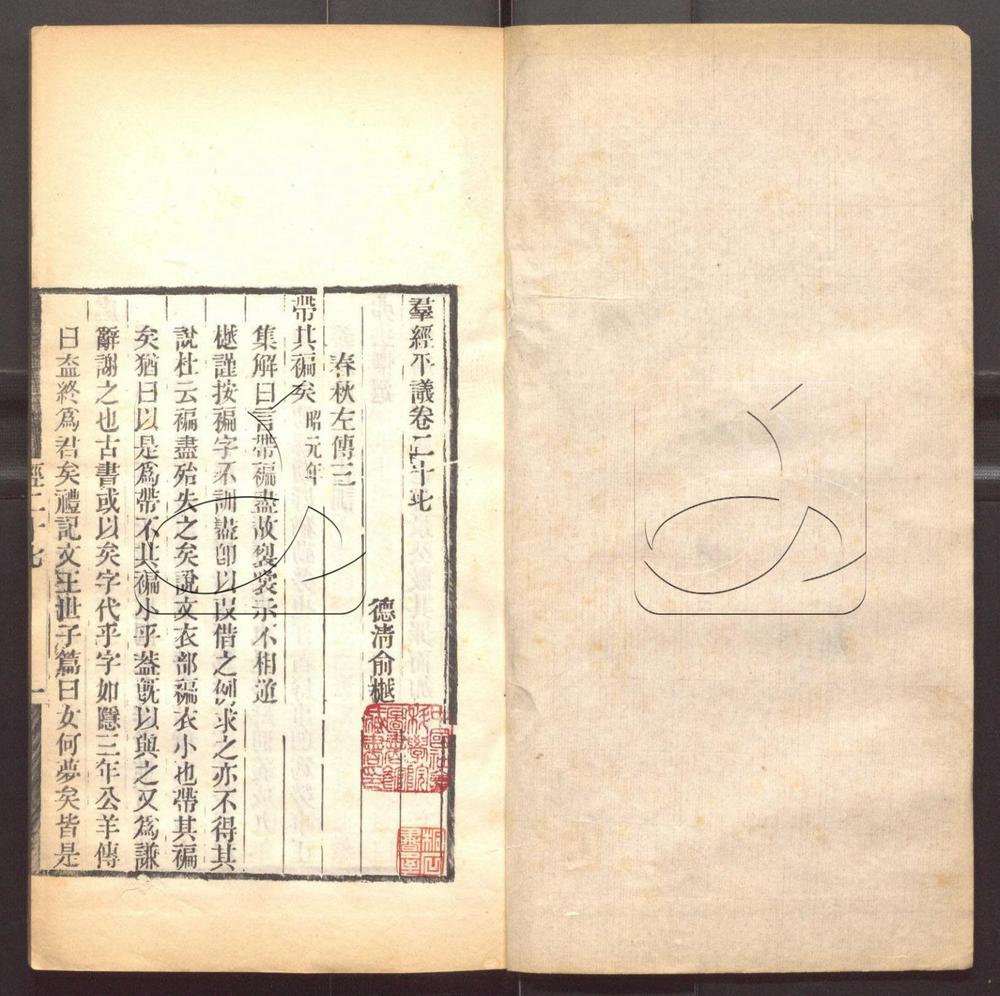 羣經平議卷二十七
德清俞樾
春秋左傳三
帶其褊矣昭元年
集解曰言帶褊盡故裂裳示不相逆
樾謹按褊字不訓盡卽以叚借之例求之亦不得其
說杜云褊盡殆失之矣說文衣部褊衣小也帶其褊
矣猶曰以是爲帶不其褊小乎葢旣以與之又爲謙
辭謝之也古書或以矣字代乎字如隱三年公羊傳
曰盍終爲君矣禮記文王世子篇曰女何夢矣皆是
經二十七
一